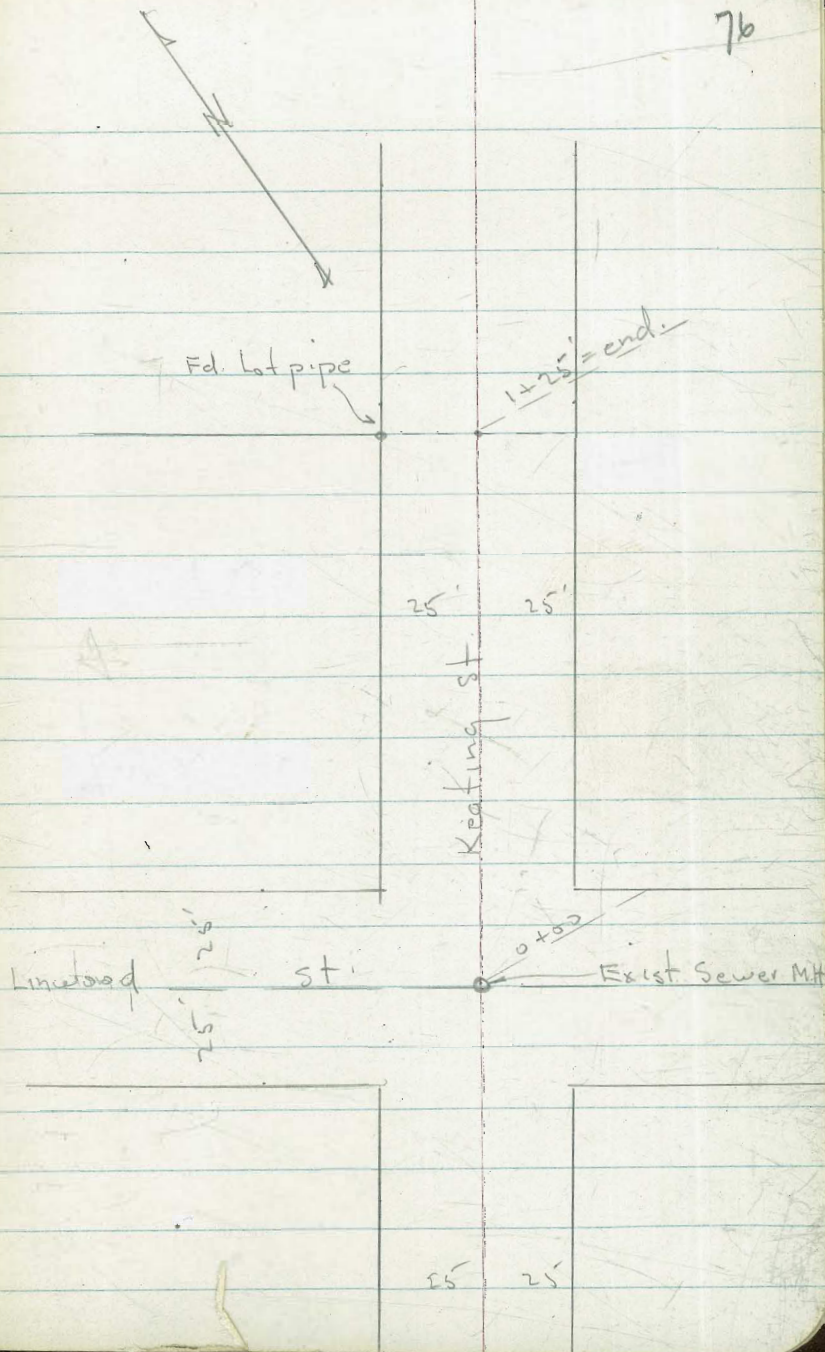 76
N
Fd. Lot pipe
1+25' = end.
25' 25'
Keating st.
0+00
25'
Linwood st.
Exist. Sewer MH
25'
25 25